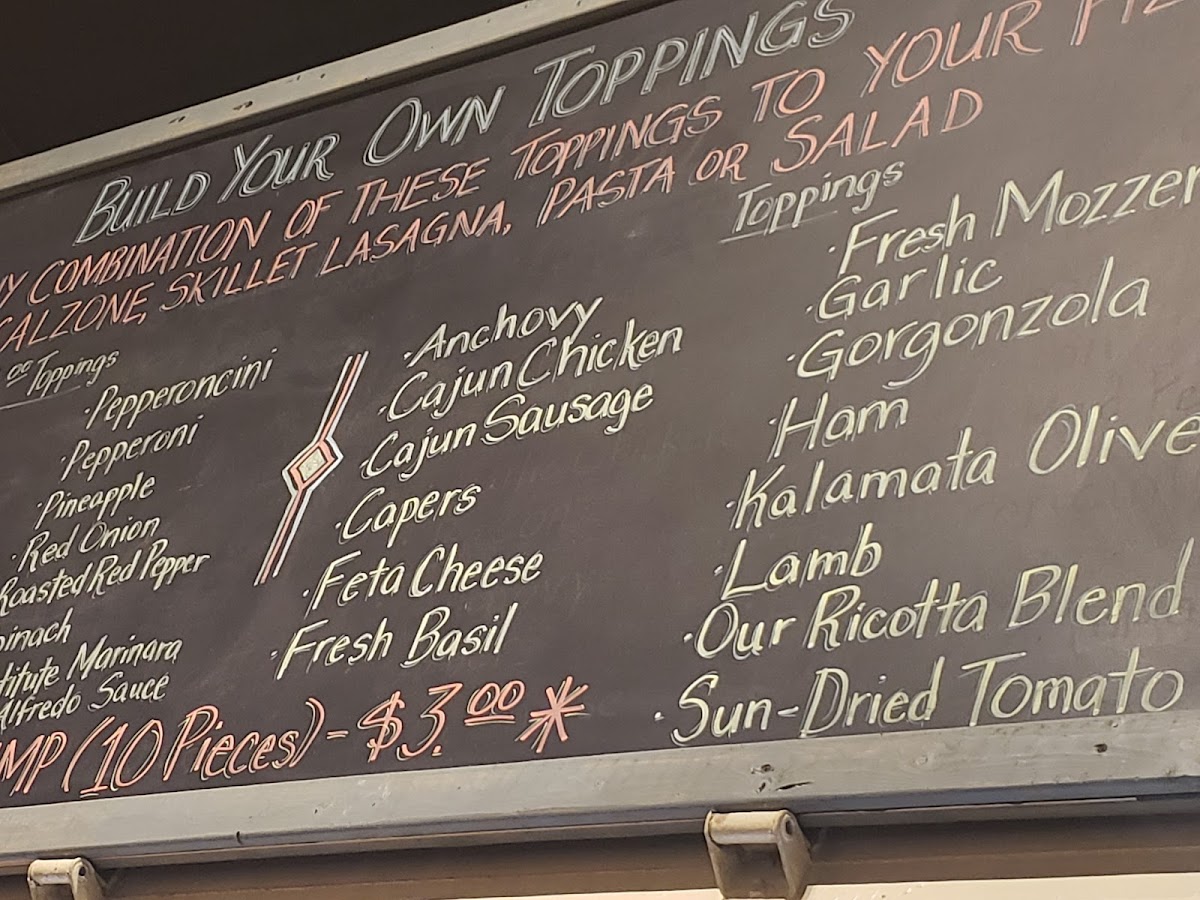 BUILD YOUR OWN TOPPINGS
COMBINATION OF THESE TOPPINGS TO YOUR
CALZONE, SKILLET LASAGNA, PASTA OR SALAD
00 Toppings
· Pepperoncini
· Pepperoni
· Pineapple
· Red Onion
Roasted Red Pepper
Marinara
Alfredo Sauce
· Anchovy
· Cajun Chicken
· Cajun Sausage
· Capers
· Feta Cheese
· Fresh Basil
Toppings
· Fresh
· Garlic
· Gorgonzola
· Ham
· Kalamata Olive
· Lamb
· Our Ricotta Blend
· Sun-Dried Tomato
(10 Pieces) - $3.00*